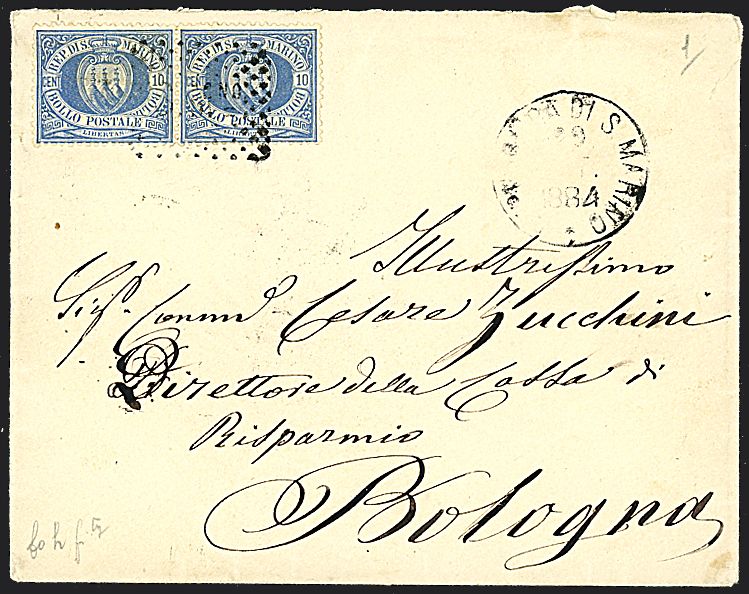 REP. DI S. MARINO
CENT. 10
BOLLO POSTALE
LIBERTAS
REP. DI S. MARINO
10
BOLLO POSTALE
1
DI S. MARINO
1884
Illustrissimo
Sigr. Commd. Cesare Zucchini
Direttore della Cassa di
Risparmio
Bologna